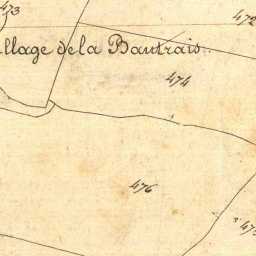 473
472
illage de la Bautrais
474
476